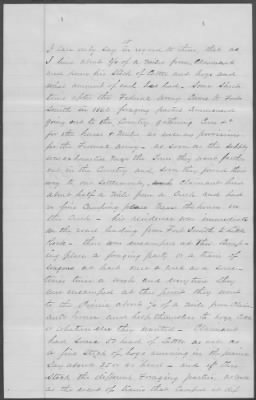 I can only say in regard to time, that as
I live about 3/4 of a mile from Claimant
and knew his Stock of Cattle and hogs and
what amount of each he had. Some short
time after the Federal Army Came to Fort
Smith in 1863 foraging parties Commenced
going out to the Country gathering Corn &c
for the horses & Mules as well as provisions
for the Federal Army - as soon as the supply
was exhausted near the Town they went further
out in the Country and soon they found their
way to our Settlement, Claimant lived
about half a Mile from a Creek and had
a fine Camping place near his house on
the Creek - His residence was immediately
on the road leading from Fort Smith to Little
Rock - there was encamped at this Camp-
ing place a foraging party or a train of
wagons at least once a week and as a some-
times twice a week and everytime they
were encamped at this point they went
to the Prairie about 3/4 of a mile from Claim-
ants house and help themselves to hogs, Cattle
or whatever else they wanted - Claimant
had some 50 head of Cattle as well as
a fine stock of hogs running in the prairie
Say about 250 or head - and off this
Stock the different Foraging parties, as well
as the escort of trains that camped at dif-